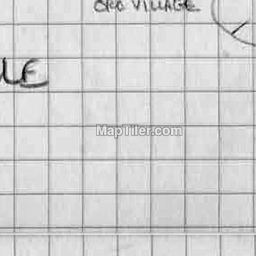 ORC VILLAGE
LE
MapTiler.com